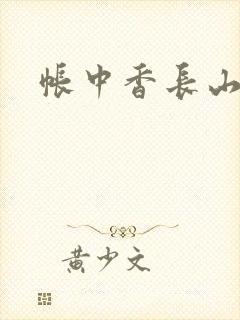 帳中香長山
黄少文